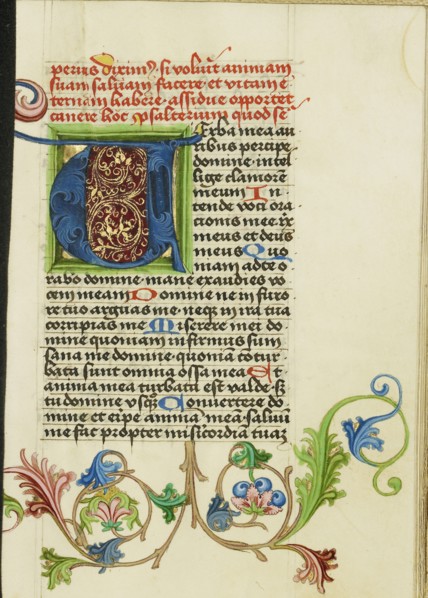 perius dixim⁹. si volūt animam
suam saluam facere et vitam e
ternam habere. assidue opportet
canere hoc psalterium quod se
Verba mea au
ribus percipe
domine intel
lige clamorē
meum In
tende voci ora
cionis mee rex
meus et deus
meus Quo
niam ad te o
rabo domine mane exaudies vo
cem meam Domine ne in furo
re tuo arguas me neqȝ in ira tua
corripias me Miserere mei do
mine quoniam infirmus sum
sana me domine quoniā cōtur
bata sunt omnia ossa mea Et
anima mea turbata est valde sȝ
tu domine vsqȝquo Conuertere do
mine et eripe animā meā saluū
me fac propter misericordiā tuaȝ